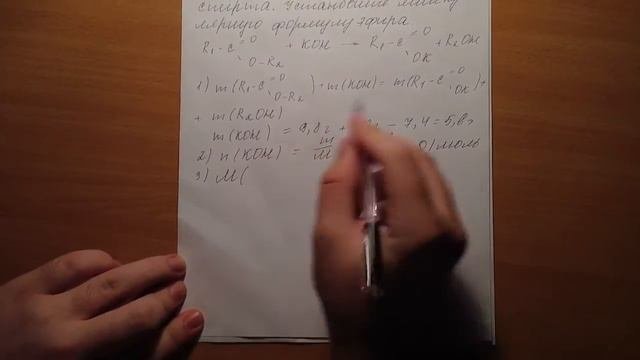 спирта. Установите молеку
лярную формулу эфира.
R₁-C =O O-R₂ + KOH → R₁-C =O OK + R₂OH
1) m(R₁-C =O O-R₂) + m(KOH) = m(R₁-C =O OK) +
+ m(R₂OH)
m(KOH) = 9,8г + - 7,4 = 5,6г
2) n(KOH) = m M 0,1моль
3) M(